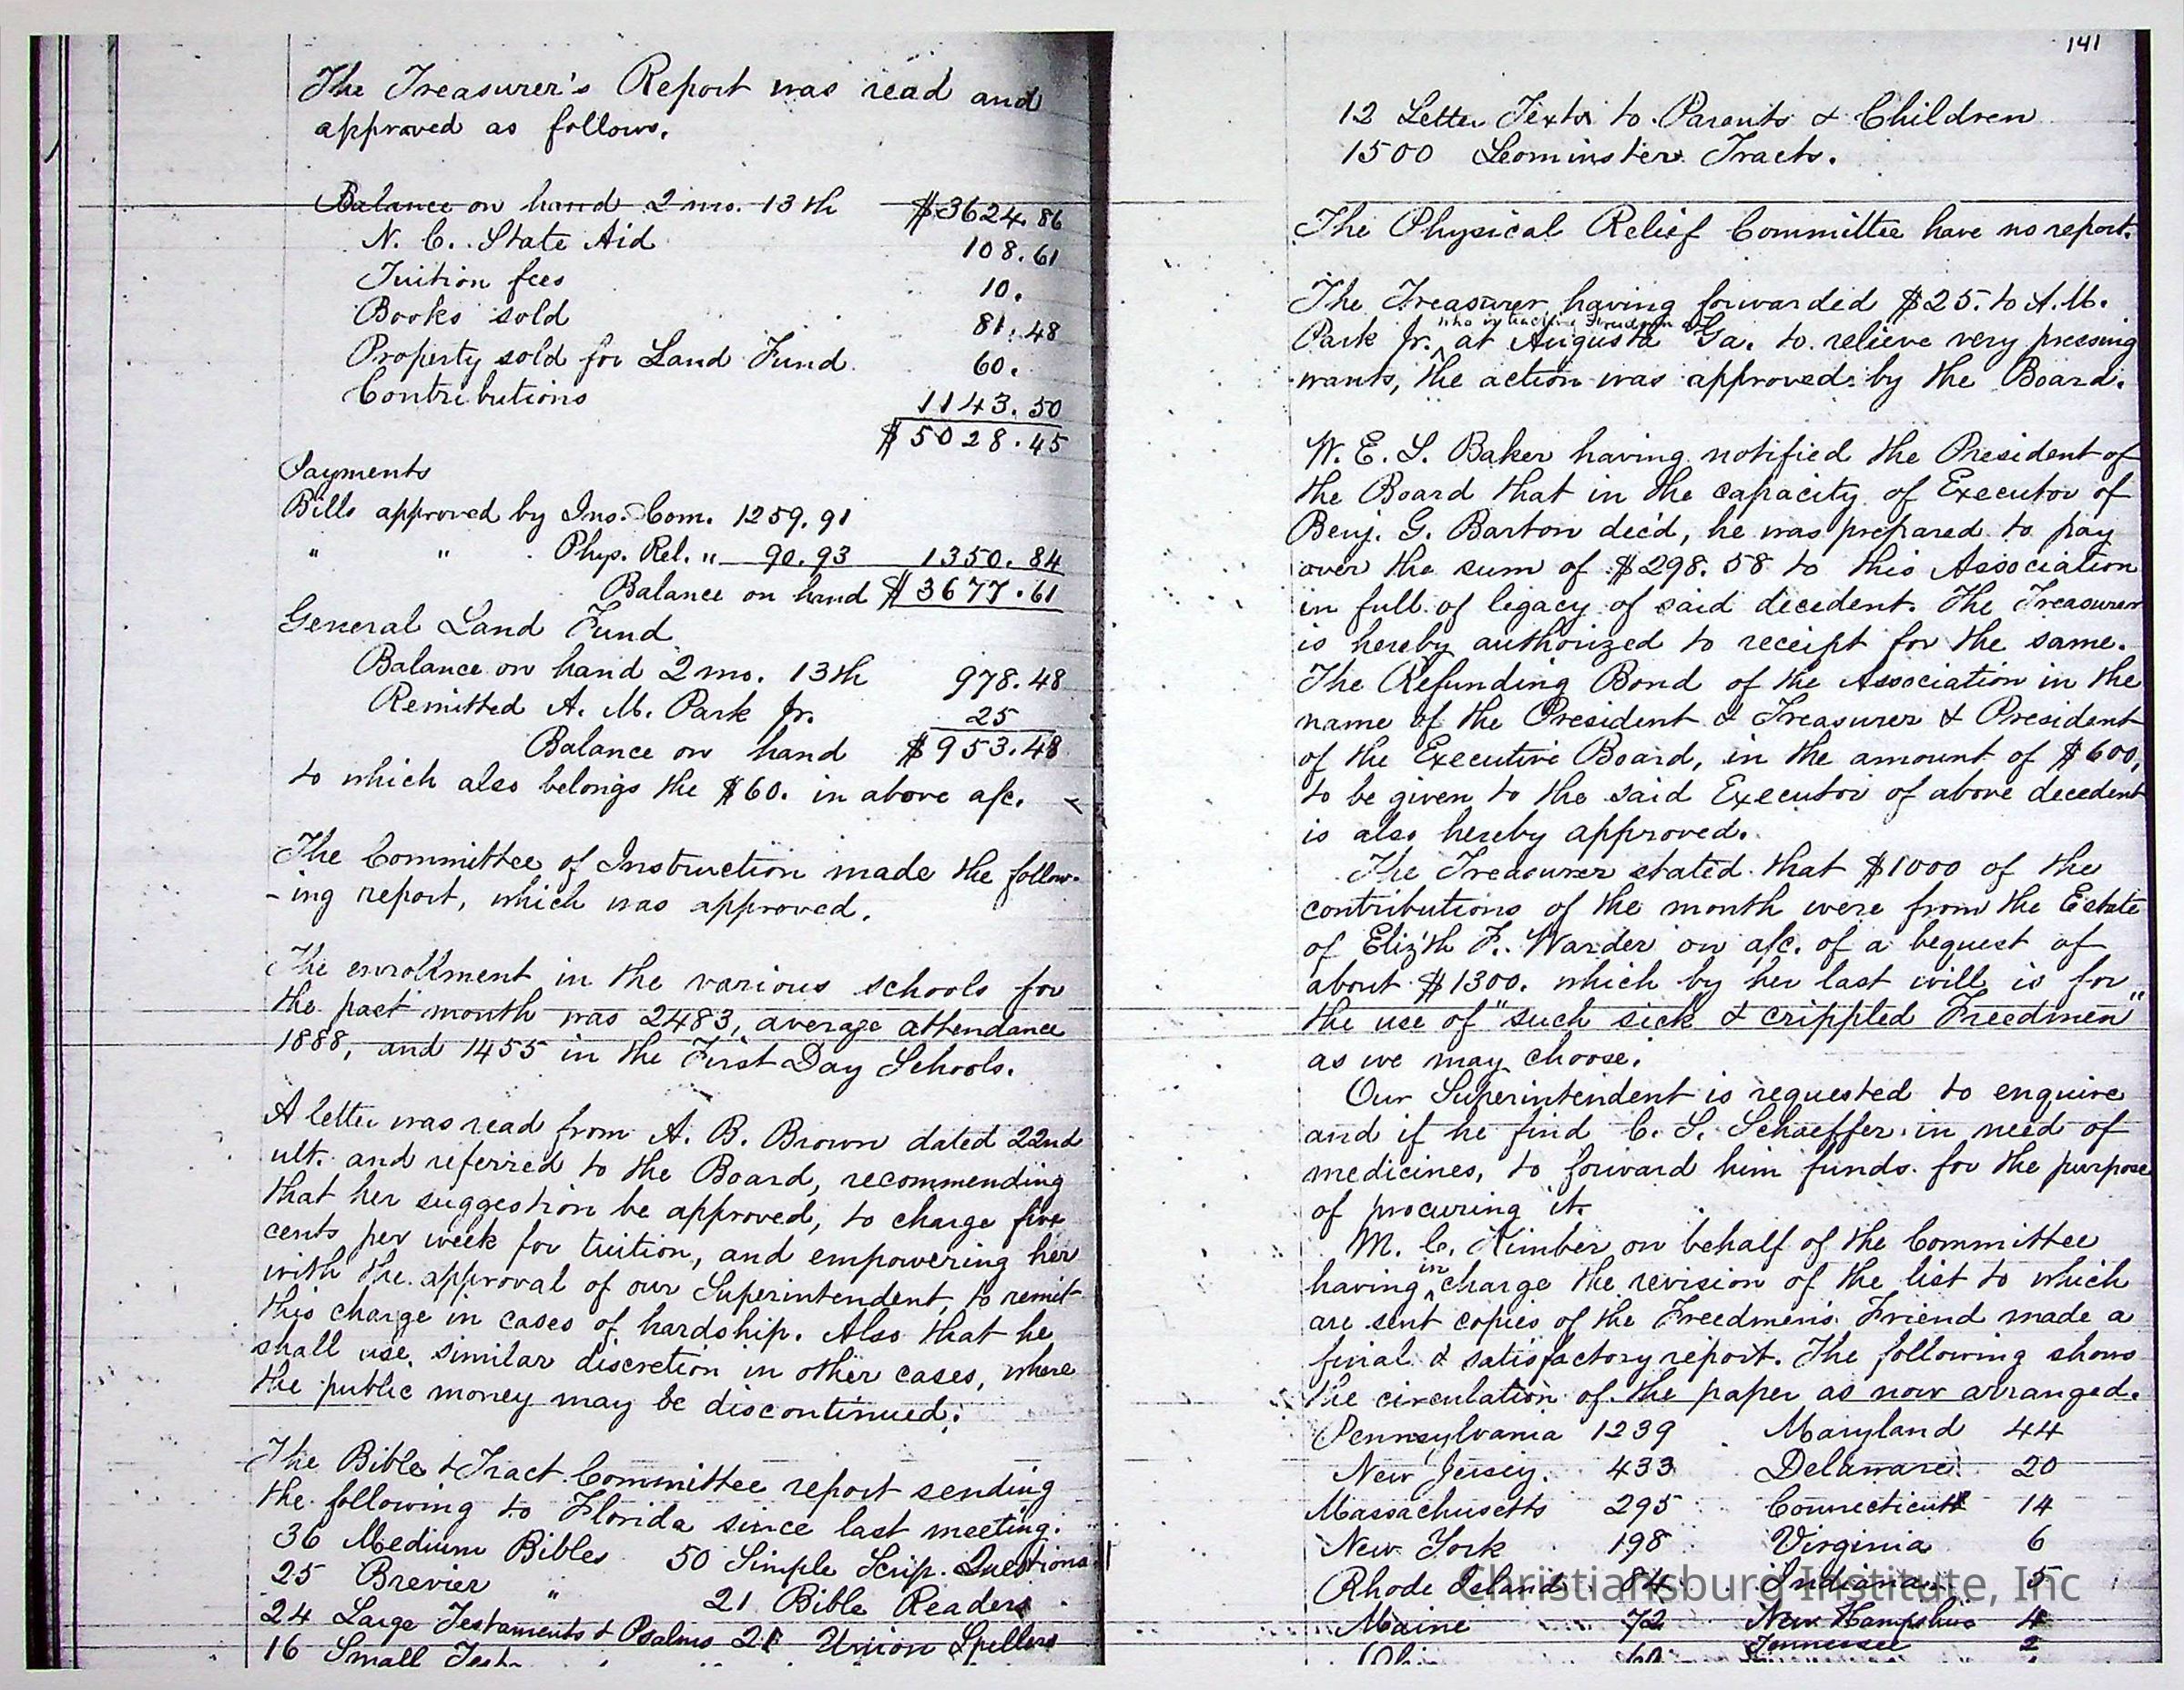 The Treasurer's Report was read and
approved as follows.
Balance on hand 2 mo. 13th $3624.86
N. C. State Aid 108.61
Tuition fees 10.
Books sold 81.48
Property sold for Land Fund 60.
Contributions 1143.50
$5028.45
Payments
Bills approved by Ins. Com. 1259.91
" " Phys. Rel. " 90.93 1350.84
Balance on hand $3677.61
General Land Fund
Balance on hand 2 mo. 13th 978.48
Remitted A. M. Park Jr. 25
Balance on hand $953.48
to which also belongs the $60. in above a/c.
The Committee of Instruction made the follow-
-ing report, which was approved.
The enrollment in the various schools for
the past month was 2483, average attendance
1888, and 1455 in the First Day Schools.
A letter was read from A. B. Brown dated 22nd
ult. and referred to the Board, recommending
that her suggestion be approved, to charge five
cents per week for tuition, and empowering her
with the approval of our Superintendent, to remit
this charge in cases of hardship. Also that he
shall use similar discretion in other cases, where
the public money may be discontinued.
The Bible & Tract Committee report sending
the following to Florida since last meeting.
36 Medium Bibles 50 Simple Scrip. Questions
25 Brevier " 21 Bible Readers
24 Large Testaments & Psalms 21 Union Spellers
16 Small Test.
141
12 Letter Texts to Parents & Children
1500 Leominster Tracts.
The Physical Relief Committee have no report.
The Treasurer having forwarded $25. to A. M.
who is teaching Freedmen
Park Jr. at Augusta Ga. to relieve very pressing
wants, the action was approved by the Board.
W. E. S. Baker having notified the President of
the Board that in the capacity of Executor of
Benj. G. Barton dec'd, he was prepared to pay
over the sum of $298.58 to this Association
in full of legacy of said decedent. The Treasurer
is hereby authorized to receipt for the same.
The Refunding Bond of the Association in the
name of the President & Treasurer & President
of the Executive Board, in the amount of $600,
to be given to the said Executor of above decedent
is also hereby approved.
The Treasurer stated that $1000 of the
contributions of the month were from the Estate
of Eliz'th F. Warder on a/c. of a bequest of
about $1300. which by her last will is for
the use of "such sick & crippled Freedmen"
as we may choose.
Our Superintendent is requested to enquire
and if he find C. S. Schaeffer in need of
medicines, to forward him funds for the purpose
of procuring it.
M. C. Kimber on behalf of the Committee
having in charge the revision of the list to which
are sent copies of the Freedmen's Friend made a
final & satisfactory report. The following shows
the circulation of the paper as now arranged.
Pennsylvania 1239 Maryland 44
New Jersey. 433 Delaware 20
Massachusetts 295 Connecticut 14
New York 198 Virginia 6
Rhode Island 84 Indiana 5
Maine 72 New Hampshire 4
Tennessee 2
Christiansburg Institute, Inc